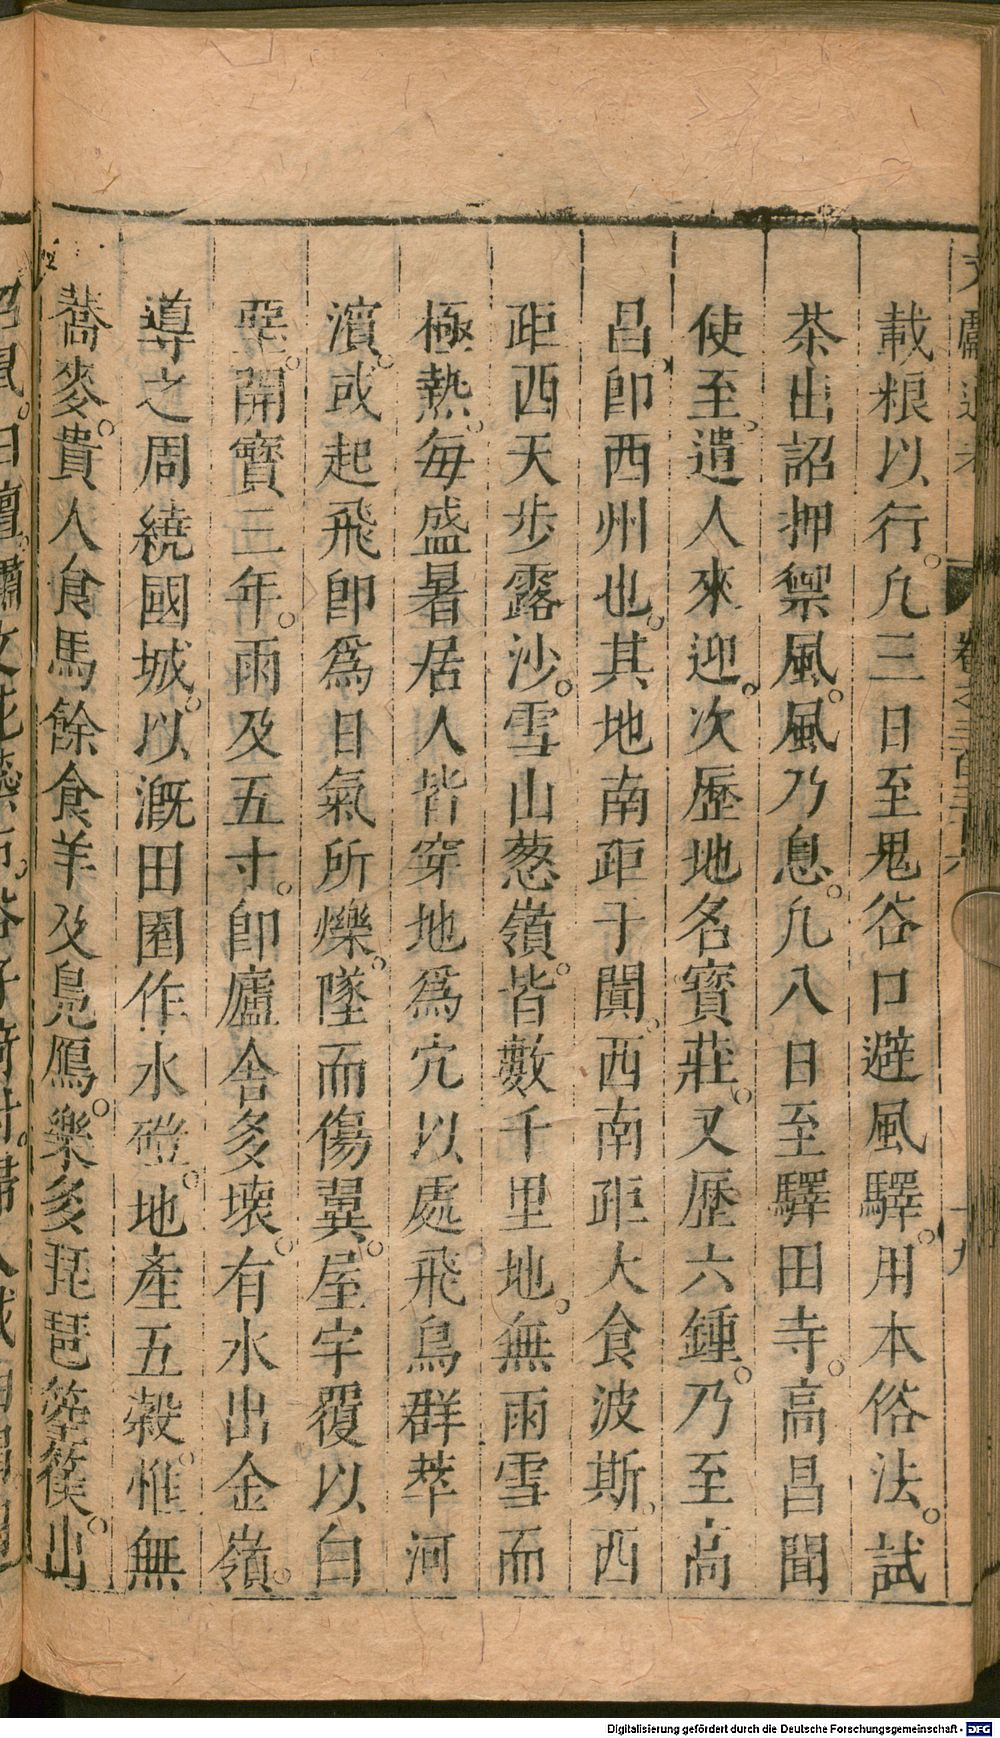 載粮以行。凢三日至鬼谷口避風驛。用本俗法。試
茶出詔押禦風。風乃息。凢八日至驛田寺。高昌聞
使至。遣人來迎。次歷地名寳莊。又歷六鍾。乃至高
昌卽西州也。其地南距于闐。西南距大食波斯。西
距西天步露沙。雪山葱嶺。皆數千里地。無雨雪而
極熱。每盛暑居人皆穿地爲穴以處飛鳥群萃河
濵。或起飛卽爲日氣所爍。墜而傷翼。屋宇覆以白
堊。開寳三年。雨及五寸。卽廬舍多壊。有水出金嶺。
導之周繞國城。以溉田園作水磑。地產五穀。惟無
蕎麥。貴人食馬餘食羊及鳧鴈。樂多琵琶箜篌。出
Digitalisierung gefördert durch die Deutsche Forschungsgemeinschaft - DFG